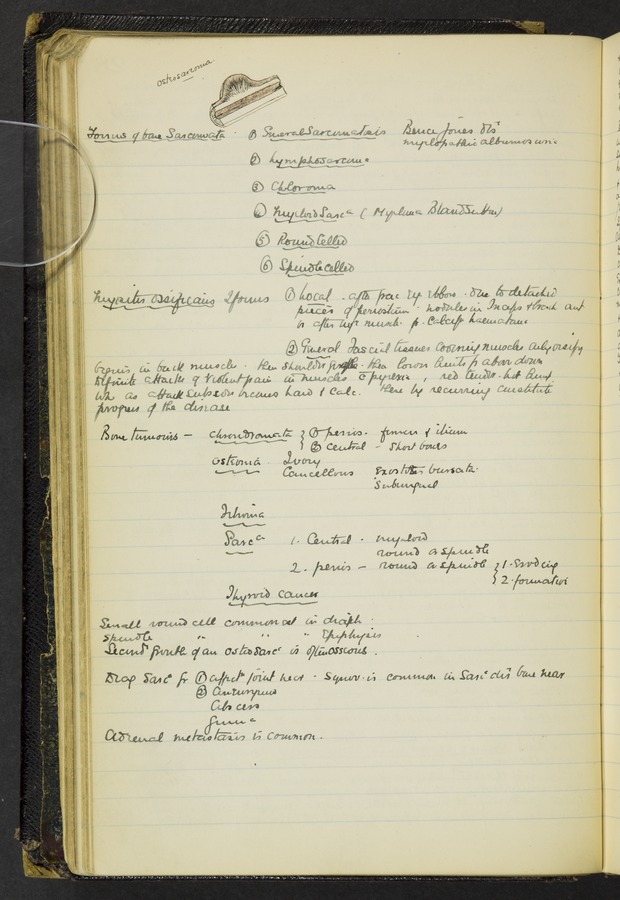 osteosarcoma.
Forms of bone Sarcomata. ① General Sarcomatosis Bence Jones dis
myelopathic albumosuria
② Lymphosarcoma
③ Chloroma
④ Myeloid Sarca ( Myeloma Bland Sutton)
⑤ Round Celled
⑥ Spindle celled
Myositis ossificans 2 forms ① Local - after frac. due to detached
pieces of periosteum. nodules in &
or after muscle haematoma
② General Fascial tissues covering muscles only ossify
begins in back muscles - then shoulders then lower limbs from above down
Definite attacks of violent pain in muscles c̄ pyrexia, red tender hot lump
wh as attack subsides becomes hard & calc. These by recurring constitute
progress of the disease
Bone tumours - chondromata } ① perios. femur & ilium
② central - short bones
osteoma Ivory
Cancellous Exostosis bursata.
Subungual
Fibroma
Sarca 1. Central - myeloid
round or spindle
2. perios - round or spindle } 1. Eroding
2. formation
Thyroid cancer
Small round cell commonest in diaph.
spindle " " " Epiphysis
Second growth of an osteosarc is often osseous.
Diag Sarca fr ① joint near. Synov. is common in Sarca dis bone near
② Aneurysm
Abscess
Gumma
Adrenal metastasis is common.